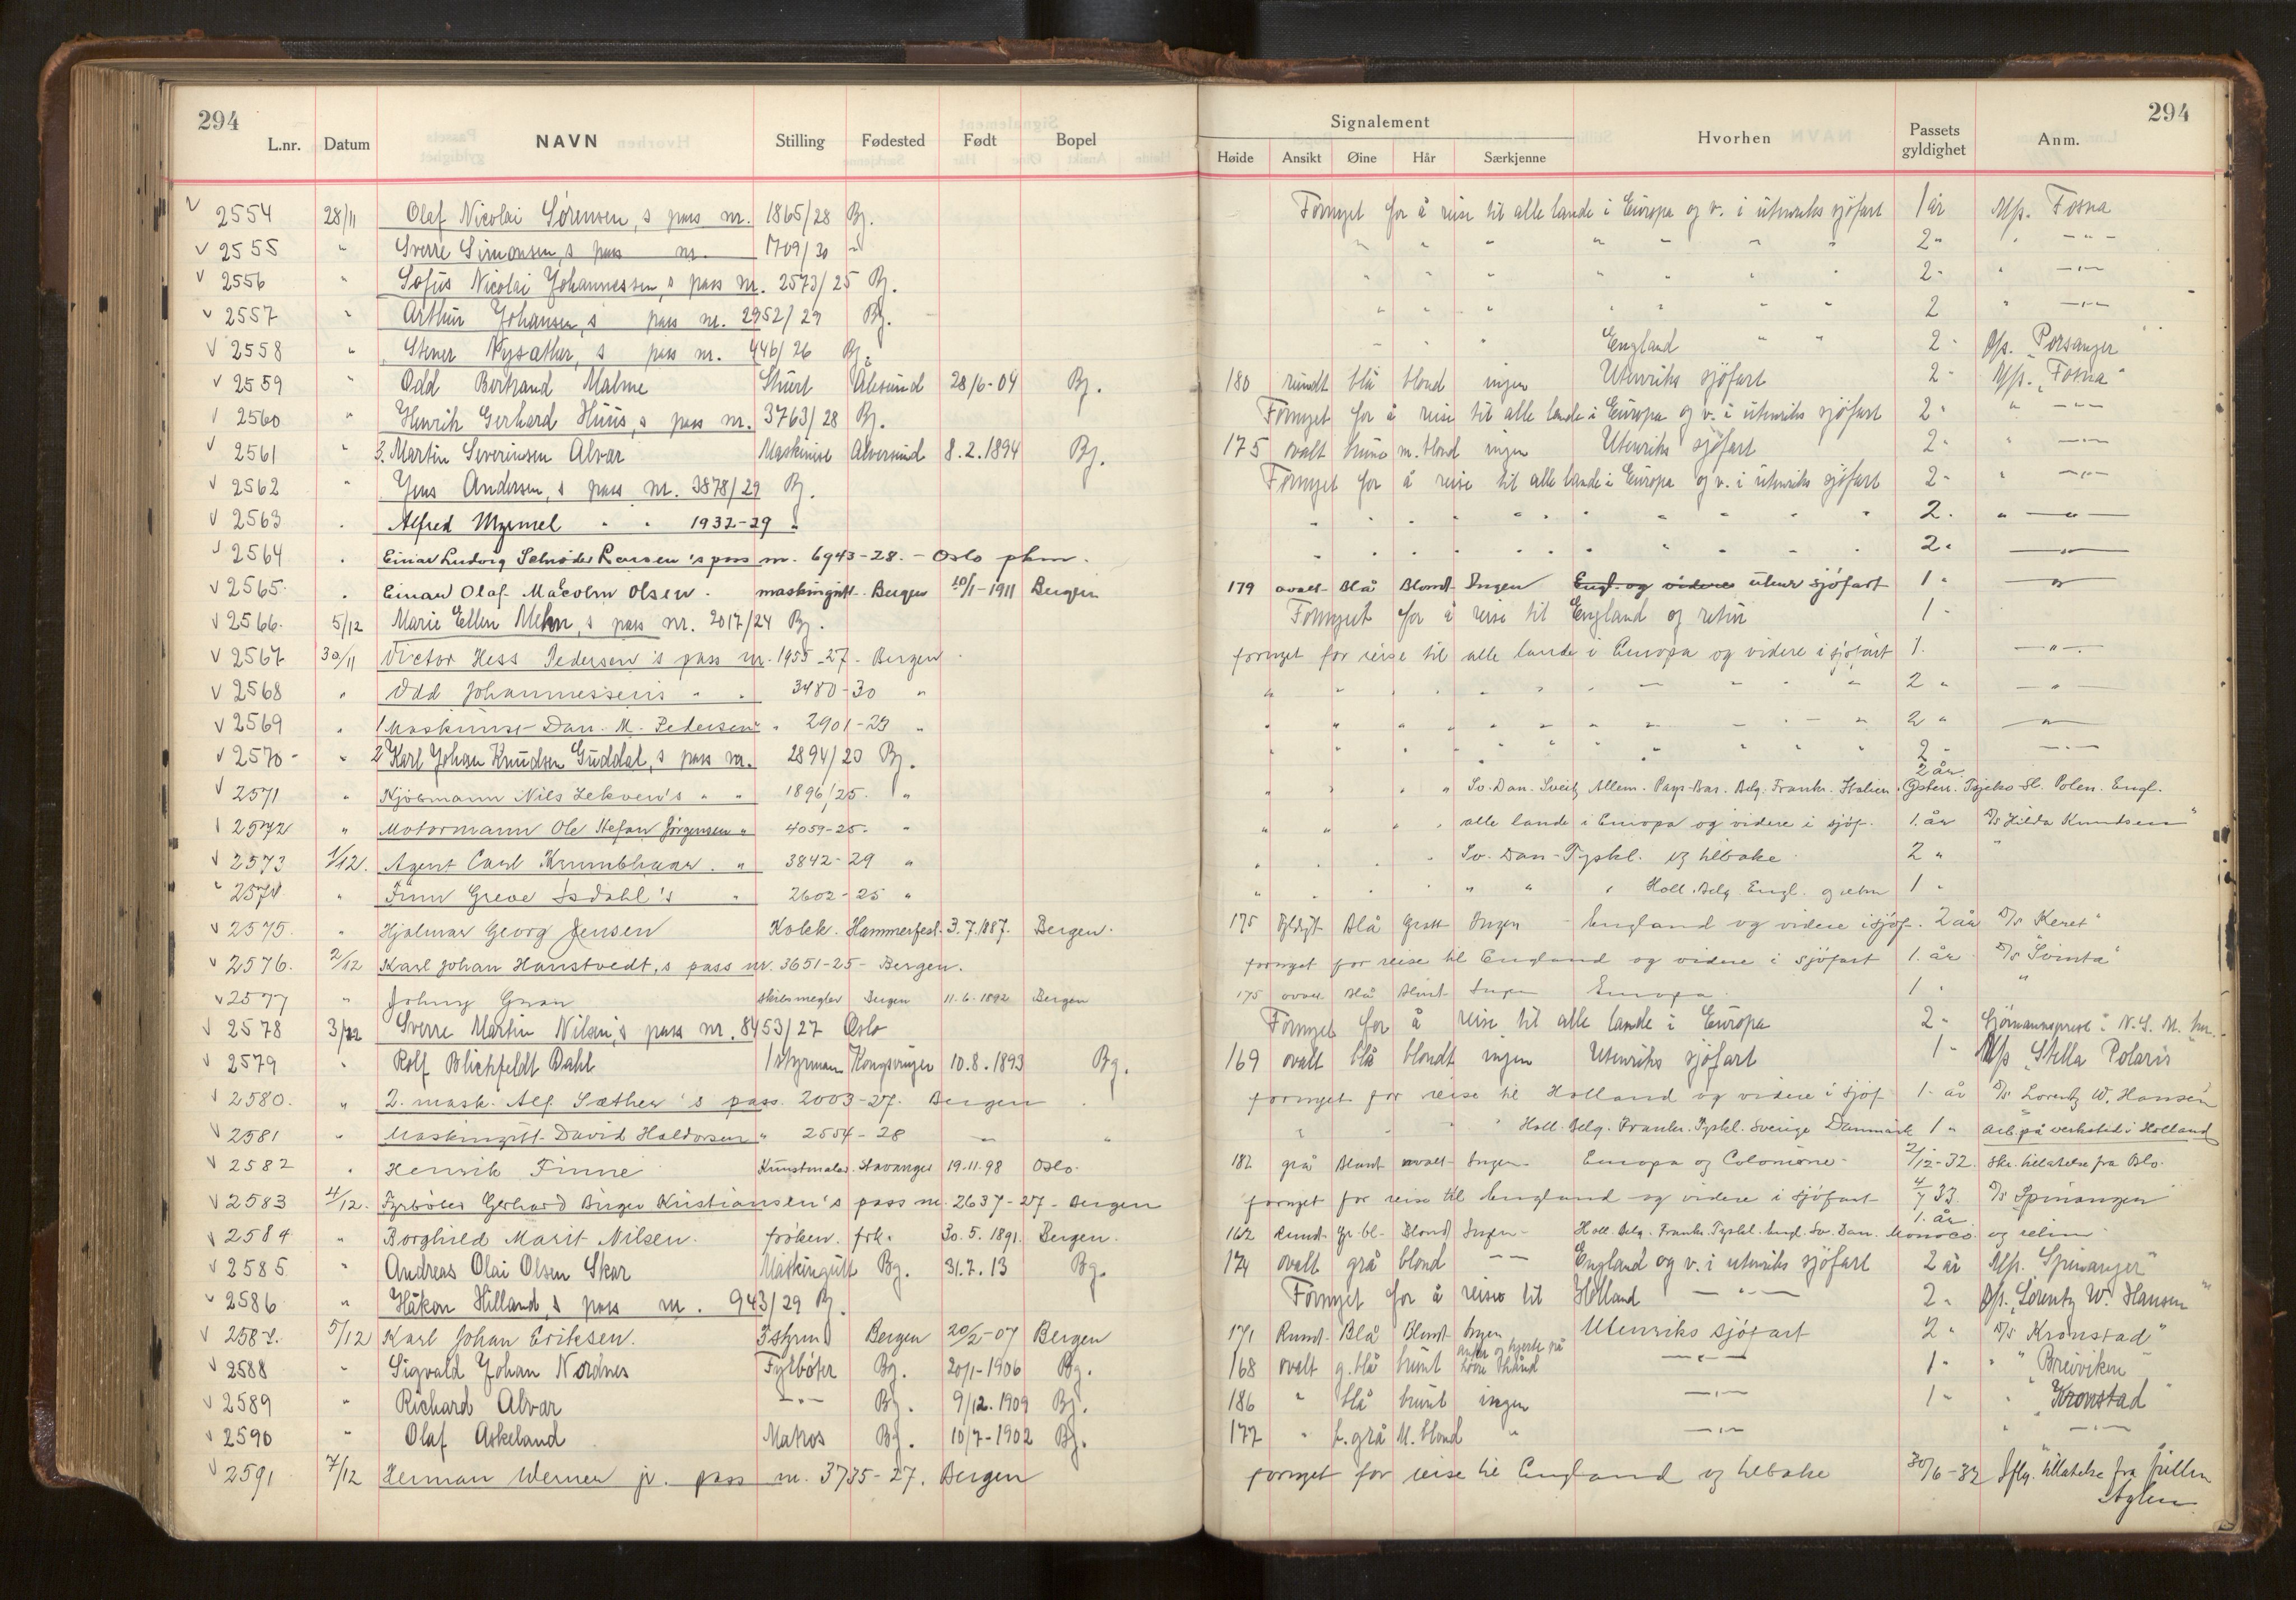 294 294
Signalement
L.nr. Datum NAVN Stilling Fødested Født Bopel Høide Ansikt Øine Hår Særkjenne Hvorhen Passets gyldighet Anm.
2554 28/11 Olaf Nicolai Sørensen, s pass nr. 1865/28 Bg. Fornyet for å reise til alle lande i Europa og v. i utenriks sjöfart 1 år M/s. Fosna
2555 " Sverre Simonsen, s pass nr. 1709/30 " " " " " " " " 2 " " — " —
2556 " Sofus Nicolai Johannessen, s pass nr. 2573/25 Bg. " " " " " " " 2 - " — " —
2557 " Arthur Johansen, s pass nr. 2952/29 Bg. " " " " " " " 2 " — " —
2558 " Stener Nysæther, s pass nr. 446/26 Bg. " " " England " " 2 - D/s. Porsanger
2559 " Odd Bertrand Malme Stuert Ålesund 28/6-04 Bg. 180 rundt blå blond ingen Utenriks sjöfart 2 - M/s. "Fosna"
2560 " Henrik Gerhard Huus, s pass nr. 3763/28 Bg. Fornyet for å reise til alle lande i Europa og v. i utenriks sjöfart 2 - " — " —
2561 " 3. Martin Severinsen Alvar Maskinist Alversund 8.2.1894 Bg. 175 ovalt brune m. blond ingen Utenriks sjöfart 2 - " — " —
2562 " Jens Andersen, s pass nr. 3878/29 Bg. Fornyet for å reise til alle lande i Europa og v. i utenriks sjöfart 2 - " — " —
2563 " Alfred Myrmel " " 1932-29 " " " " " " " " 2. " — " —
2564 " Einar Ludvig Schrøder Larsen's pass nr. 6943-28. - Oslo pkm. " " " " " " " 2. — " —
2565 " Einar Olaf Malcolm Olsen. maskingutt Bergen 20/1-1911 Bergen 179 ovalt Blå Blond Ingen Engl. og videre utenr sjöfart 1 - — " —
2566. 5/12 Marie Ellen Mehn, s pass nr. 2017/24 Bg. Fornyet for å reise til England og retur 1 -
2567 30/11 Victor Hess Pedersen's pass nr. 1955-27 - Bergen fornyet for reise til alle lande i Europa og videre i sjöfart 1. — " —
2568 " Odd Johannessens " " 3480-30 " " " " " " " " 2 " — " —
2569 " 1 Maskinist Dan. M. Pedersen " " 2901-29 " " " " " " " " 2 " — " —
2570 - " 2 Karl Johan Knudsen Guddal, s pass nr. 2894/20 Bg. " " " " " " " 2 - — " —
2571 " Kjöbmann Nils Lekven's " " 1896/25. " " " " " Sv. Dan. Sveitz Allem. Pays-Bas. Belg. Frankr. Italien. Østerr. Tsjeko-Sl. Polen. Engl. 2 år
2572 " Motormann Ole Stefan Jörgensen " 4059-25. " " " " " alle lande i Europa og videre i sjöf. 1. år D/s Hilda Knudsen"
2573 1/12. Agent Carl Krumbhaar. " 3842-29 " " " " " Sv. Dan - Tyskl. og tilbake 2 " "
2574 " Finn Greve Isdahl's " 2602-25 " " " " " " " " Holl. Belg. Engl. og retur 1 "
2575. " Hjalmar Georg Jensen Kokk. Hammerfest. 3.7.1887. Bergen. 175 Blå Grått Ingen England og videre i sjöf. 2 år D/s Keret"
2576. 2/12 Karl Johan Hanstvedt, s pass nr. 3651-25 - Bergen. fornyet for reise til England og videre i sjöfart 1. år D/s "Svinta"
2577 " Johny Gran Skibsmegler Bergen 11.6.1892 Bergen 175 ovalt Blå Blond Ingen Europa. 1 " "
2578 3/12 Sverre Martin Nilsen's pass nr. 8453/27 Oslo Fornyet for å reise til alle lande i Europa 2 - Sjömannsprest i N.S.M.
2579 " Rolf Blichfeldt Dahl 1 styrman Kongsvinger 10.8.1893 Bg. 169 ovalt blå blondt ingen Utenriks sjöfart 1 - M/s "Stella Polaris"
2580. " 2. mask. Alf Sæther's pass. 2003-27. Bergen. fornyet for reise til Holland og videre i sjöf 1. år D/s Lorentz W. Hansen
2581 " Maskingutt David Haldorsen " 2554-28 — " " " " " Holl. Belg. Frankr. Tyskl. Sverige Danmark 1 " arb. på verksted i Holland
2582 " Henrik Finne Kunstmaler Stavanger 19.11.98 Oslo. 182 grå Blond ovalt Ingen Europa og Colonierne. 2/12-32. Skr. tillatelse fra Oslo.
2583 4/12. Fyrböter Gerhard Birger Kristiansen's pass nr. 2637-27 - Bergen fornyet for reise til England og videre i sjöfart 4/7 33. D/s Spinanger"
2584 " Borghild Marit Nilsen. fröken. frk. 30.5.1891. Bergen. 162 Rund Gr. bl. Blond Ingen Holl. Belg. Frankr. Tyskl. Engl. Sv. Dan. Monaco 1. år og retur
2585 " Andreas Olai Olsen Skar Maskingutt Bg. 31.7.13 Bg. 174 ovalt grå blond — England og v. i utenriks sjöfart 2 år M/s. Spinanger"
2586 " Håkon Hilland, s pass nr. 943/29 Bg. Fornyet for å reise til Holland — " — 2 - D/s. "Lorentz W. Hansen"
2587. 5/12 Karl Johan Eriksen. 3 styrm Bergen 20/2-07 Bergen 171 Rund Blå Blond Ingen Utenriks sjöfart 2 " D/s Kronstad"
2588 " Sigvald Johan Nordnes Fyrböter Bg. 20/1-1906 Bg. 168 ovalt g. blå brunt anker og hjerte på — " — 1 - " "Breiviken"
2589 " Richard Alvar — " — Bg. 9/12.1909 Bg. 186 " blå brunt ingen — " — 1 - " "Kronstad"
2590 " Olaf Askeland Matros Bg. 10/7-1902 Bg. 177 " b. grå M. blond " — " — " — " —
2591 7/12 Herman Werner jr. pass nr. 3735-27. Bergen fornyet for reise til England og tilbake 30/6-32 Iflg. tillatelse fra